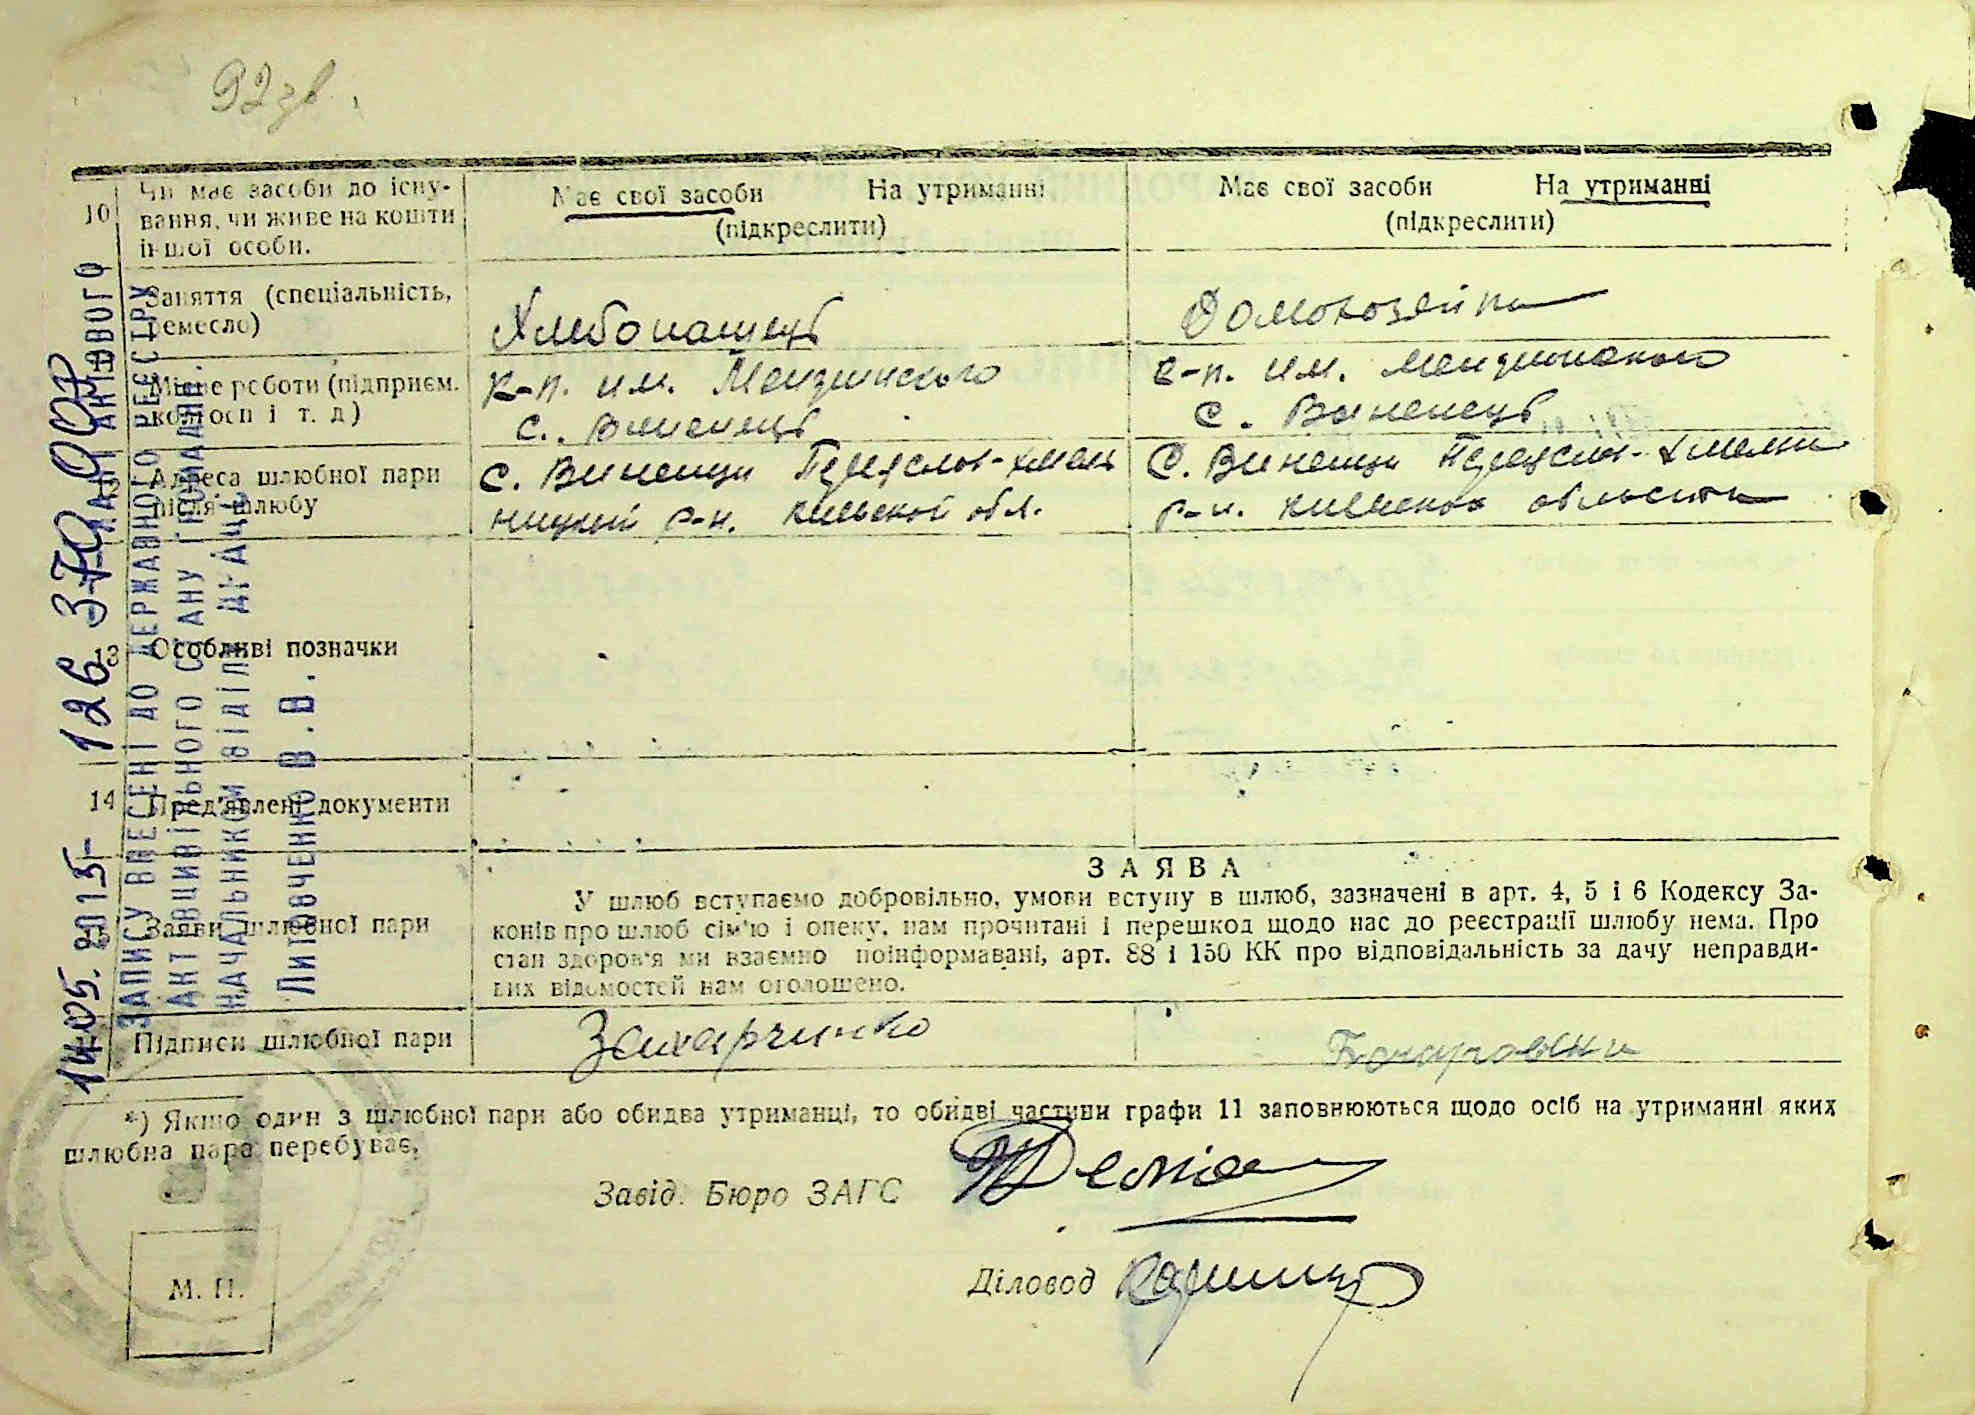 92 зв.
10 Чи має засоби до існу-
вання, чи живе на кошти
іншої особи.
Має свої засоби На утриманні
(підкреслити)
Має свої засоби На утриманні
(підкреслити)
Заняття (спеціальність,
ремесло)
Хлебопашець
Домохозяйка
Місце роботи (підприєм.
колгосп і т. д)
к-п. им. Менжинского
с. Виненець
к-п. им. Менжинского
с. Виненець
12 Адреса шлюбної пари
після шлюбу
с. Виненци Переяслов-Хмель
ницкий р-н. Киевской обл.
с. Виненци Переяслов-Хмельн
р-н. Киевской области
13 Особливі позначки
14 Пред'явлені документи
15 Заяви шлюбної пари
ЗАЯВА
У шлюб вступаємо добровільно, умови вступу в шлюб, зазначені в арт. 4, 5 і 6 Кодексу За-
конів про шлюб сім'ю і опеку, нам прочитані і перешкод щодо нас до реєстрації шлюбу нема. Про
стан здоров'я ми взаємно поінформавані, арт. 88 і 150 КК про відповідальність за дачу неправди-
вих відомостей нам оголошено.
Підписи шлюбної пари
Захарчинко
*) Якщо один з шлюбної пари або обидва утриманці, то обидві частини графи 11 заповнюються щодо осіб на утриманні яких
шлюбна пара перебуває.
Завід. Бюро ЗАГС
Діловод
М. П.
14.05.2015 126 370 907
ЗАПИСУ ВНЕСЕНІ ДО ДЕРЖАВНОГО РЕЄСТРУ
АКТІВ ЦИВІЛЬНОГО СТАНУ ГРОМАДЯН.
НАЧАЛЬНИКОМ ВІДДІЛУ ДРАЦС
Литовченко В.В.